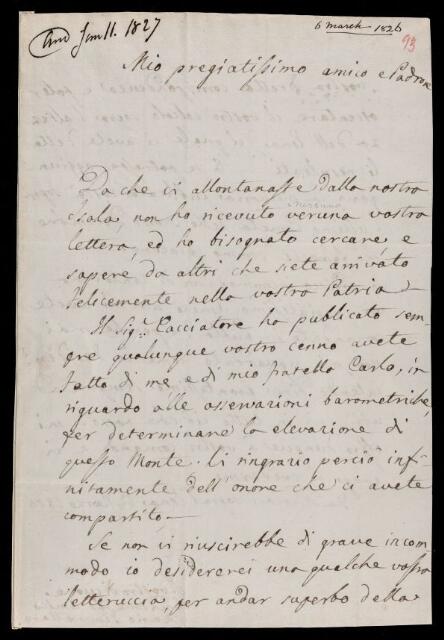 And Jan 11. 1827
6 march 1826
93
Mio pregiatissimo amico e Padrone
Da che vi allontanaste dalla nostra
Isola, non ho ricevuto veruna vostra
lettera, ed ho bisognato cercare, e
sapere da altri che siete arrivato
felicemente nella vostra Patria –
Il Sig.r Cacciatore ha publicato sem-
pre qualunque vostro cenno avete
fatto di me e di mio fratello Carlo, in
riguardo alle osservazioni barometriche,
per determinare la elevazione di
questo Monte. Vi ringrazio perciò infi-
nitamente dell'onore che ci avete
compartito –
Se non vi riuscirebbe di grave incom-
modo io desidererei una qualche vostra
letteruccia, per andar superbo della